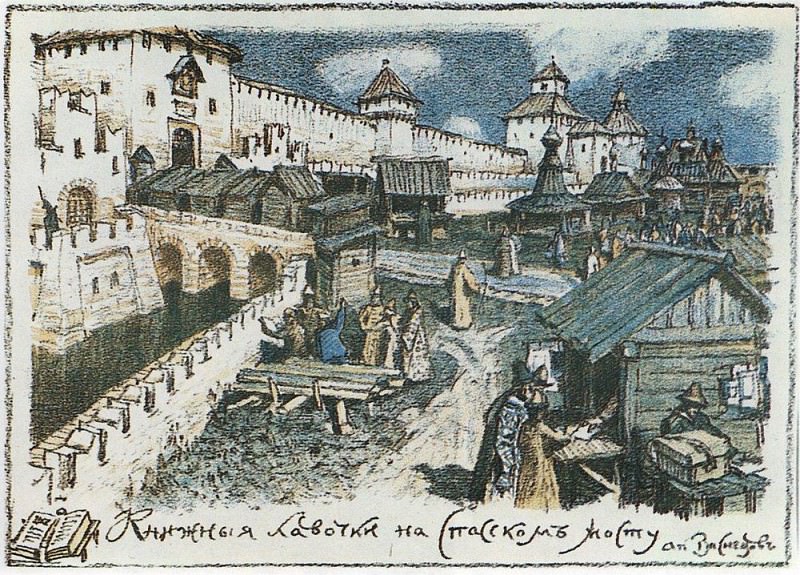 Книжныя лавочки на Спасскомъ мосту
Ап. Васнецовъ